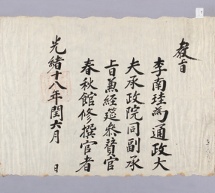 敎旨
李南珪爲通政大
夫承政院同副承
旨兼經筵參贊官
春秋館修撰官者
光緖十八年閏六月 日